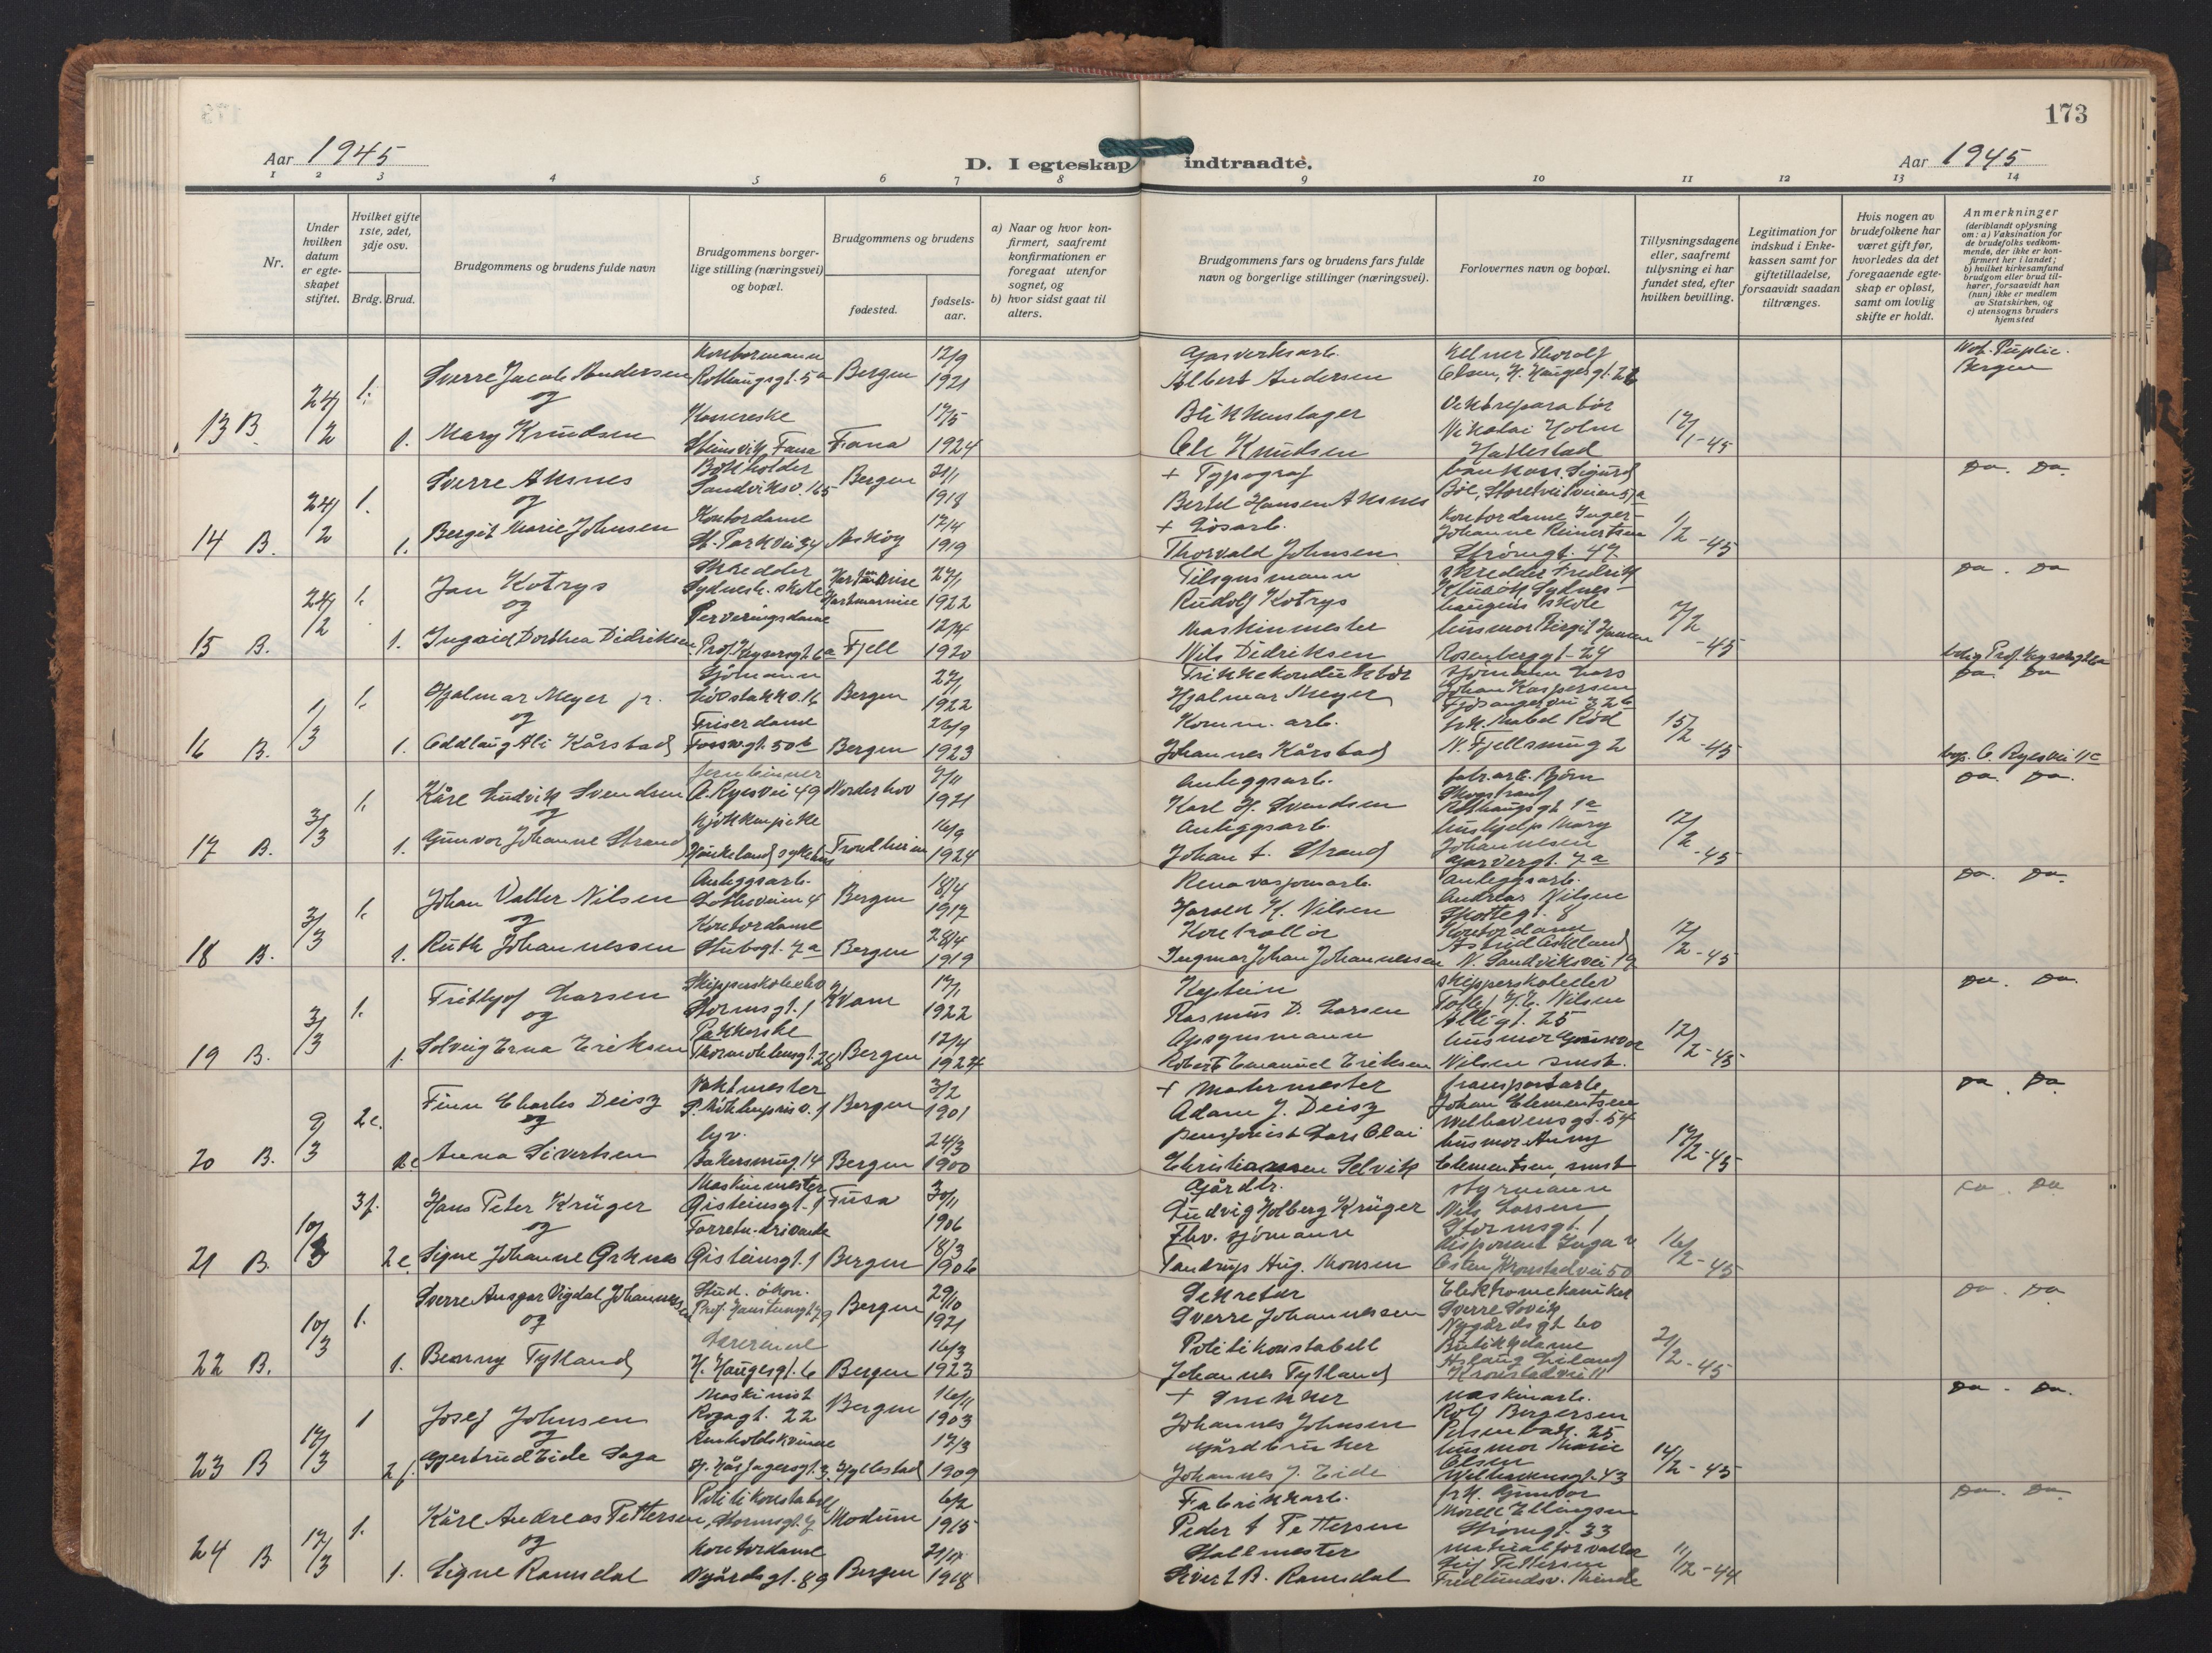 173
Aar 1945
D. I egteskap indtraadte.
Aar 1945
1 2 3 4 5 6 7 8 9 10 11 12 13 14
Nr.
Under hvilken datum er egteskapet stiftet.
Hvilket gifte 1ste, 2det, 3dje osv.
Brdg. Brud.
Brudgommens og brudens fulde navn
Brudgommens borgerlige stilling (næringsvei) og bopæl.
Brudgommens og brudens
fødested.
fødselsaar.
a) Naar og hvor konfirmert, saafremt konfirmationen er foregaat utenfor sognet, og
b) hvor sidst gaat til alters.
Brudgommens fars og brudens fars fulde navn og borgerlige stillinger (næringsvei).
Forlovernes navn og bopæl.
Tillysningsdagene eller, saafremt tillysning ei har fundet sted, efter hvilken bevilling.
Legitimation for indskud i Enkekassen samt for giftetilladelse, forsaavidt saadan tiltrænges.
Hvis nogen av brudefolkene har været gift før, hvorledes da det foregaaende egteskap er opløst, samt om lovlig skifte er holdt.
Anmerkninger (deriblandt oplysning om: a) Vaksination for de brudefolks vedkommende, der ikke er konfirmert her i landet; b) hvilket kirkesamfund brudgom eller brud tilhører, forsaavidt han (hun) ikke er medlem av Statskirken, og c) utensogns bruders hjemsted
Kontormann 12/9 Gasverksarb. Kelner Thorolf Not. Puplic.
24/2 1. Sverre Jacob Andersen Rothaugsgt. 5a Bergen 1921 Albert Andersen Olsen, H. Haugesgt. 26 Bergen
og Kassereske 17/5 Blikkenslager Vektreparatør
13 B. 1. Mary Knudsen Fana Fana 1924 Ole Knudsen Nikolai Holm Hatlestad 17/1-45
Sverre Aksnes Bokholder Sandviksv. 165 Bergen 21/1 1918 + Typograf Bertel Hansen Aksnes Sigurd Bøe, Storetveitveien 57a Do. Do.
24/2 1. og Kontordame 17/4 + Løsarb. Kontordame Inger-
14 B. 1. Bergit Marie Johnsen St. Parkvei 34 Askøy 1919 Thorvald Johnsen Johanne Reinertsen Strømgt. 47 1/2-45
Jan Kotrys Skredder Sydnesh. skole 27/1 1922 Tilsynsmann Rudolf Kotrys Skredder Fredrik Sydneshaugens skole Do. Do
24/2 1. og 12/4 Maskinmester husmor Birgit 7/2
15 B. 1. Ingrid Dorthea Didriksen Prof. Keysersgt. 6a Fjell 1920 Nils Didriksen Rosenberggt. 24 -45
Sjømann 27/1 Trikkekonduktør Sjømann Lars
1/3 1. Hjalmar Meyer jr. Løvstakkv. 16 Bergen 1922 Hjalmar Meyer Johan Kaspersen Fjøsangervei 32b Do. Do
og Friserdame 26/9 Komm. arb. frk. Mabel Rød 15/2
16 B. 1. Oddlaug Ali Kårstad Fossw.gt. 50b Bergen 1923 Johannes Kårstad N. Fjellsmug 2 -45 C. Ryesvei 11c
Jernbinner 7/11 Anleggsarb. fabr.arb. Bjørn Do. Do.
3/3 1. Kåre Ludvik Svendsen C. Ryesvei 49 Norderhov 1921 Karl H. Svendsen Skogstrand Rothaugsgt 1a
og Kjøkkenpike 16/9 Anleggsarb. hushjelp Mary 12/2
17 B. 1. Gunvor Johanne Strand Haukeland sykehus Trondheim 1924 Johan L. Strand Johannesen -45
Anleggsarb. 18/4 Renovasjonsarb. Anleggsarb. Do. Do.
3/3 1. Johan Valter Nilsen 4 Bergen 1917 Harald K. Nilsen Andreas Nilsen Skottegt. 8
og Kontordame 28/4 Kontrollør Kontordame 12/2
18 B. 1. Ruth Johannessen Stubsgt. 7a Bergen 1919 Ingmar Johan Johannessen Astrid Askeland N. Sandviksvei 19 -45
Skipperskoleelev 17/1 Kaptein Skipperskoleelev Do. Do.
3/3 1. Frithjof Larsen Stormsgt. 1 Kvam 1922 Rasmus D. Larsen Nilsen Allégt. 25
og Pakkerske 12/4 Opsynsmann husmor Gunvor 12/2
19 B. 1. Solveig Erna Eriksen Thormøhlensgt. 28 Bergen 1924 Robert Emanuel Eriksen Nilsen smst. -45
Vaktmester 3/2 + Malermester transportarb. Do. Do.
9/3 2e. Finn Charles Deisz 1 Bergen 1901 Adam J. Deisz Johan Clementsen Welhavensgt. 54
og lyv. 24/3 pensjonist Lars Olai husmor Anny 17/2
20 B. 2e Anna Sivertsen Bakersmug 14 Bergen 1900 Christiansen Selvik Clementsen smst -45
Maskinmester 30/11 Gårdbr. Styrmann Do. Do
10/3 3f. Hans Peter Krüger Gisteinsgt. 1 Fusa 1906 Ludvig Holberg Krüger Nils Larsen Stormsgt. 1
og Forretn.drivende 18/3 Fhv. sjømann Disponent Inga 16/2
21 B. 2e. Signe Johanne Orknes Gisteinsgt. 1 Bergen 1906 Tandrup Aug. Monsen Osten Kronstadvei 50 -45
Stud. økon. 29/10 Sekretær Elektromekaniker Do. Do
10/3 1. Sverre Ansgar Vigdal Johannessen Prof. Hanstensgt 79 Bergen 1921 Sverre Johannessen Sverre Sovik Nygårdsgt. 60
og Lærerinne 16/3 Politikonstabell Butikkdame 2/2
22 B. 1. Benny Tytland H. Haugesgt. 6 Bergen 1923 Johannes Tytland Aslaug Eiland Kronstadvei 11 -45
Maskinist 16/11 + Snekker maskinarb. Do. Do.
17/3 1 Josef Johnsen Rosagt. 22 Bergen 1903 Johannes Johnsen Rolf Bergersen 25
og 17/3 Gårdbruker husmor Marie 14/2
23 B 2f. Gjertrud Eide Saga H. Hårfagersgt. 3 Hyllestad 1909 Johannes J. Eide Olsen Welhavensgt. 43 -45
Politikonstabell 6/2 Fabrikkarb. frk. Gunvor Do. Do.
17/3 1. Kåre Andreas Pettersen Stormsgt. 7 Modum 1915 Peder A Pettersen Ellingsen Strømgt. 33
og Kontordame 21/11 Stallmester materialforvalter 11/12-44
24 B 1. Signe Ramsdal Nygårdsgt. 89 Bergen 1918 Sivert B. Ramsdal Leif Pettersen Fredlundsv. Minde